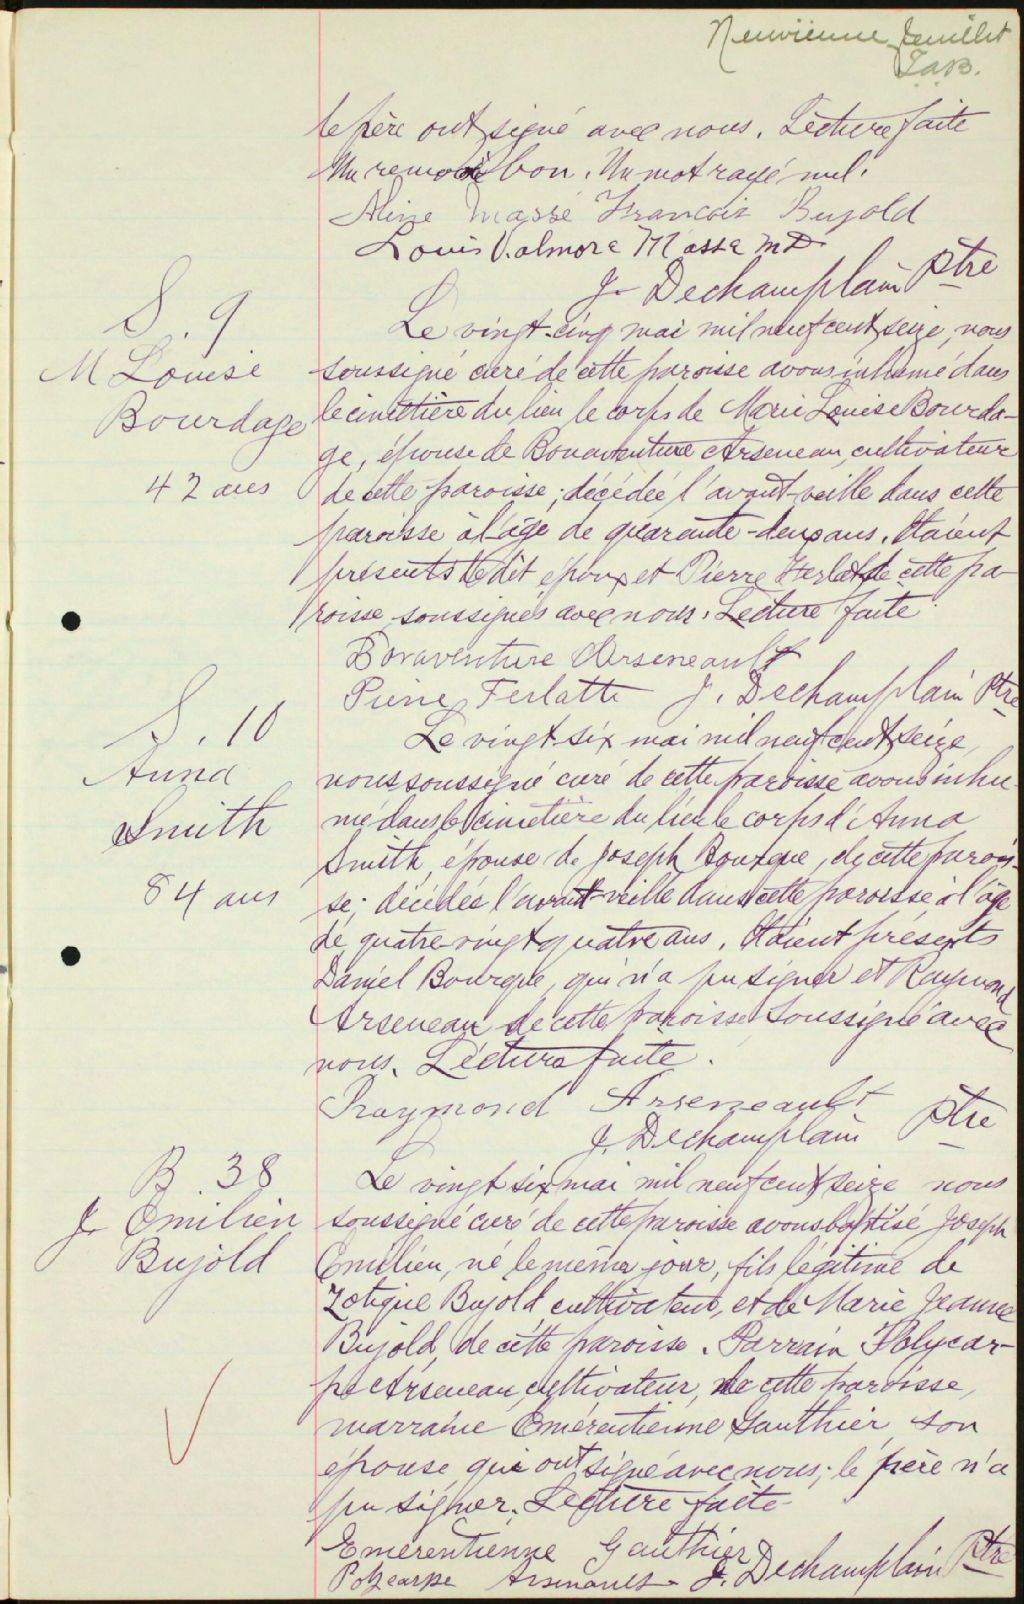 Neuvième feuillet
le père ont signé avec nous. Lecture faite
Un renvoi bon. Un mot rayé nul.
Aline Massé François Bujold
Louis Valmore Massé MD
J. Dechamplain Ptre
S. 9
M Louise
Bourdage
42 ans
Le vingt-cinq mai mil neuf cent seize, nous
soussigné curé de cette paroisse avons inhumé dans
le cimetière du lieu le corps de Marie Louise Bourda-
ge, épouse de Bonaventure Arseneau, cultivateur
de cette paroisse; décédée l'avant-veille dans cette
paroisse à l'âge de quarante-deux ans. Etaient
présents le dit époux et Pierre Ferlatte de cette pa-
roisse, soussignés avec nous. Lecture faite.
Bonaventure Arseneault
Pierre Ferlatte J. Dechamplain Ptre
S. 10
Anna
Smith
84 ans
Le vingt-six mai mil neuf cent seize,
nous soussigné curé de cette paroisse avons inhu-
mé dans le cimetière du lieu le corps d'Anna
Smith, épouse de Joseph Bourque, de cette parois-
se; décédée l'avant-veille dans cette paroisse à l'âge
de quatre-vingt quatre ans. Etaient présents
Daniel Bourque, qui n'a pu signer et Raymond
Arseneau de cette paroisse soussigné avec
nous. Lecture faite.
Raymond Arseneault
J. Dechamplain Ptre
B. 38
J Emilien
Bujold
Le vingt six mai mil neuf cent seize nous
soussigné curé de cette paroisse avons baptisé Joseph
Emilien, né le même jour, fils légitime de
Zotique Bujold cultivateur, et de Marie Jeanne
Bujold, de cette paroisse. Parrain Polycar-
pe Arseneau, cultivateur, de cette paroisse,
marraine Emérentienne Gauthier son
épouse qui ont signé avec nous; le père n'a
pu signer. Lecture faite
Emerentienne Gauthier
Polycarpe Arsenault J. Dechamplain Ptre